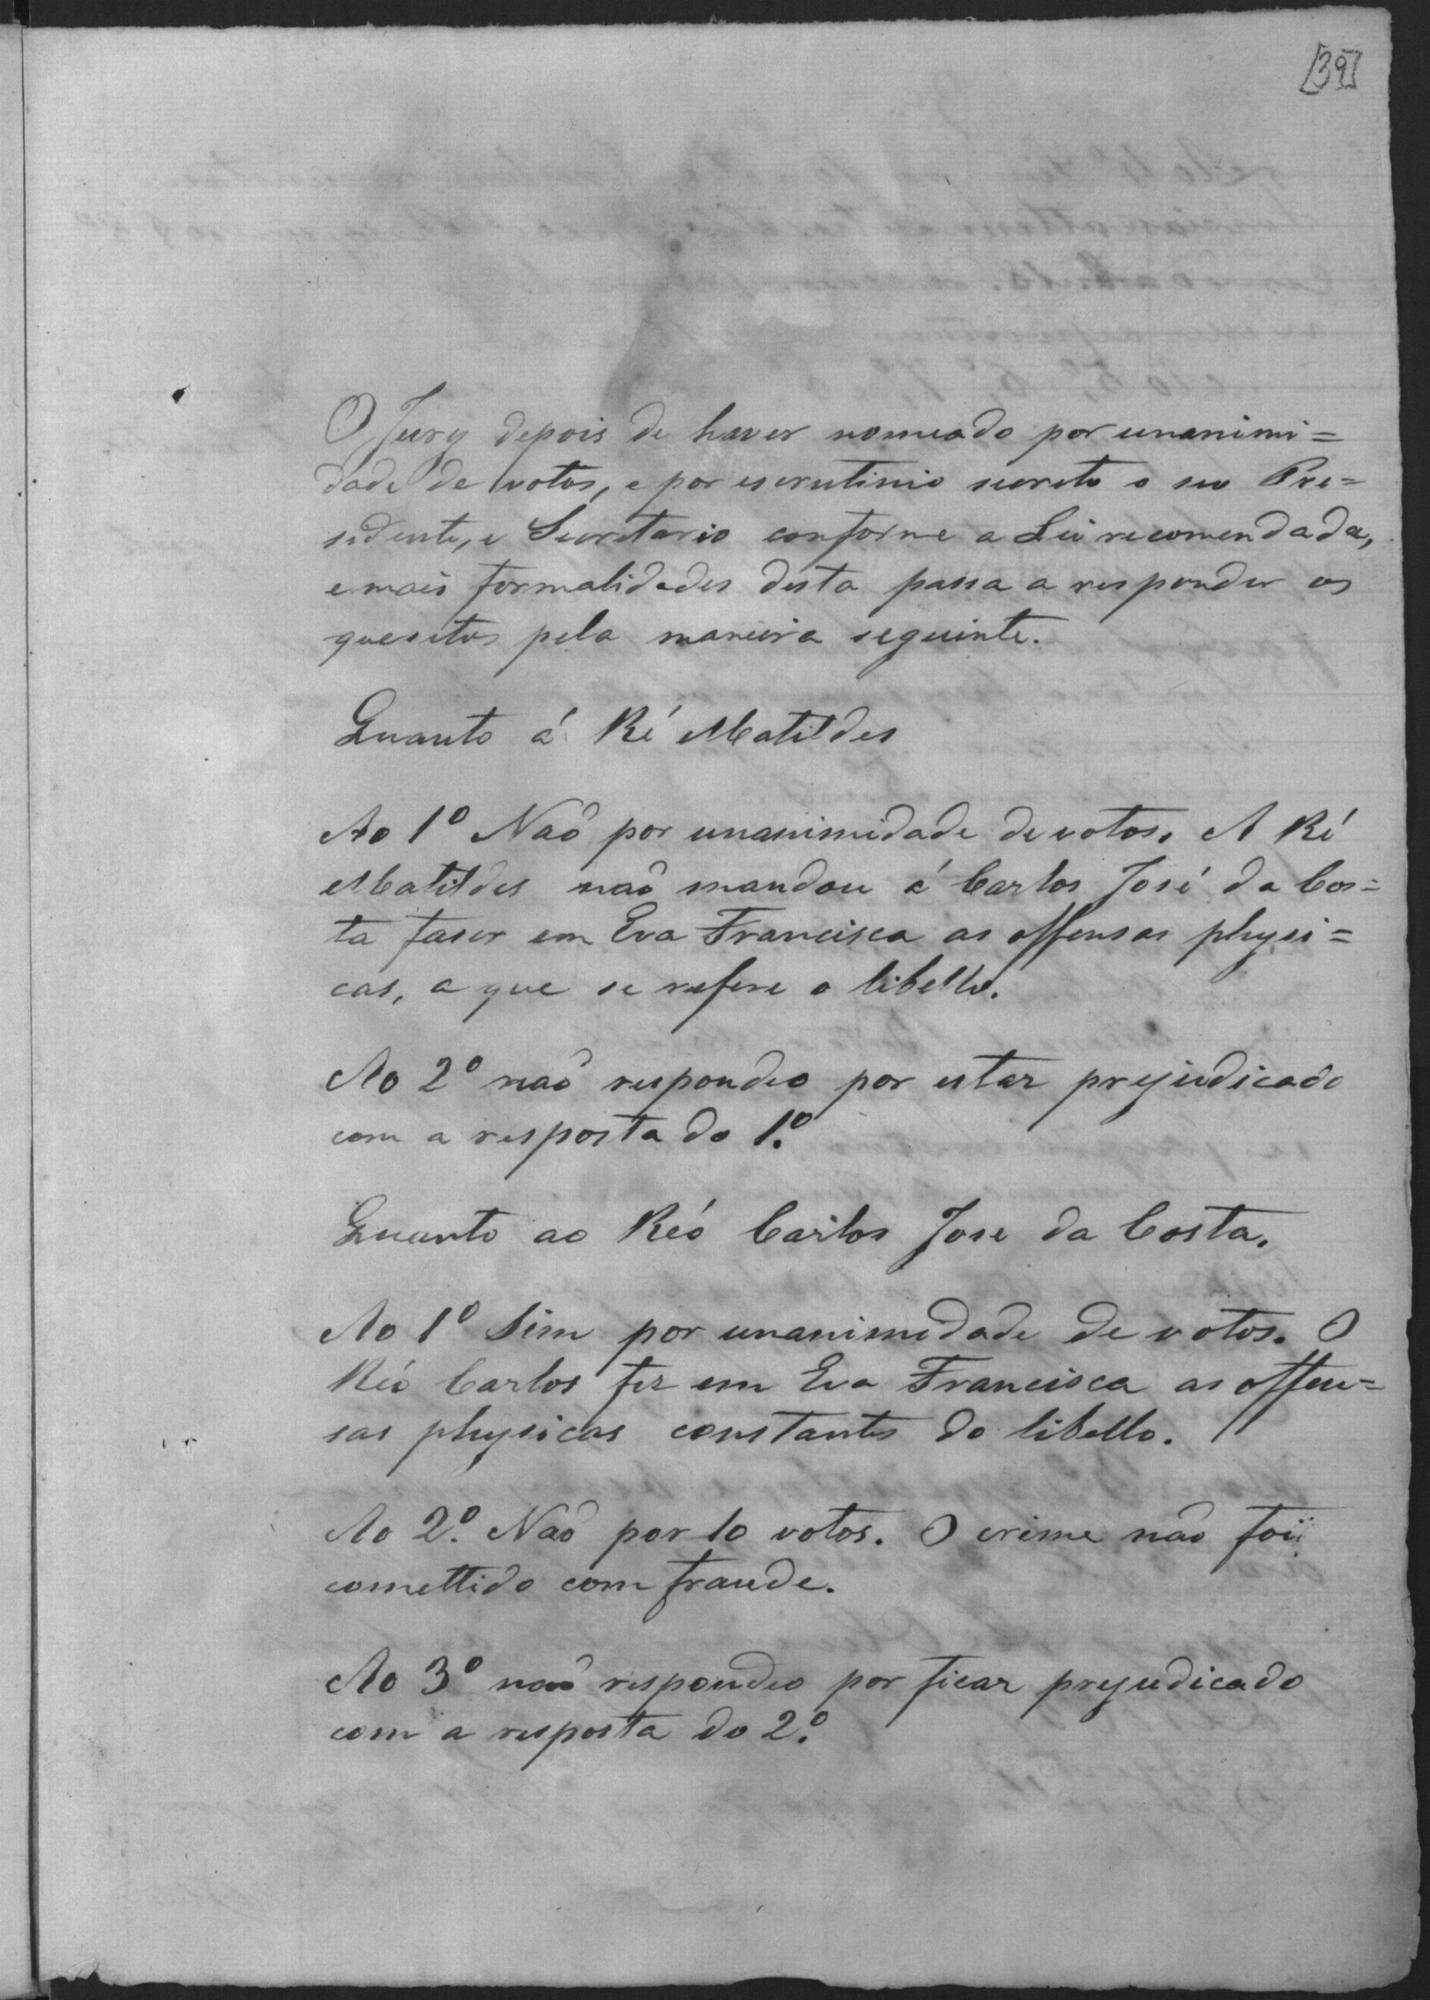 [39]
O Jury depois de haver nomeado por unanimi=
dade de votos, e por escrutinio secreto o seu Pre=
sidente, e Secretario conforme a Lei recomendada,
e mais formalidades desta passa a responder os
quesitos pela maneira seguinte.
Quanto á Ré Matildes
Ao 1º Naõ por unanimidade de votos. A Ré
Matildes naõ mandou á Carlos José da Cos=
ta faser em Eva Francisca as offensas physi=
cas, a que se refere o libello.
Ao 2º naõ respondeo por estar prejudicado
com a resposta do 1.º
Quanto ao Réo Carlos Jose da Costa.
Ao 1º Sim por unanimidade de votos. O
Réo Carlos fez em Eva Francisca as offen=
sas physicas constantes do libello.
Ao 2.º Naõ por 10 votos. O crime não foi
comettido com fraude.
Ao 3º naõ respondeo por ficar prejudicado
com a resposta do 2.º